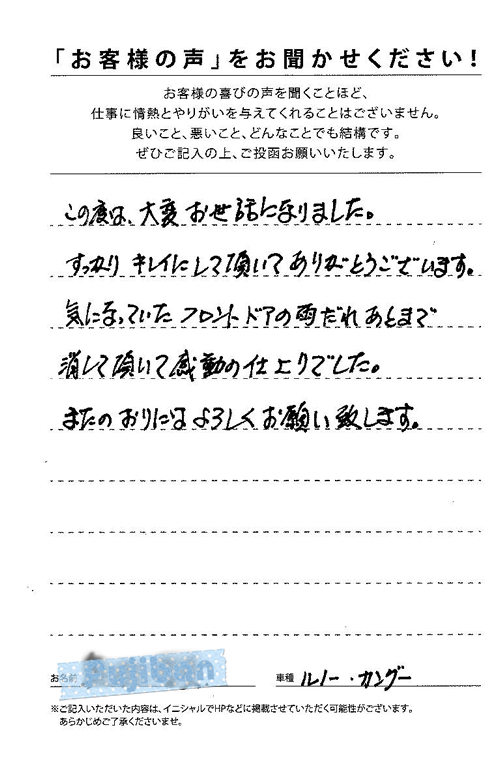 「お客様の声」をお聞かせください!
お客様の喜びの声を聞くことほど、
仕事に情熱とやりがいを与えてくれることはございません。
良いこと、悪いこと、どんなことでも結構です。
ぜひご記入の上、ご投函お願いいたします。
この度は、大変お世話になりました。
すっかりキレイにして頂いてありがとうございます。
気になっていたフロントドアの雨だれあとまで
消して頂いて感動の仕上りでした。
またのおりにはよろしくお願い致します。
お名前
車種 ルノー・カングー
※ご記入いただいた内容は、イニシャルでHPなどに掲載させていただく可能性がございます。
あらかじめご了承くださいませ。